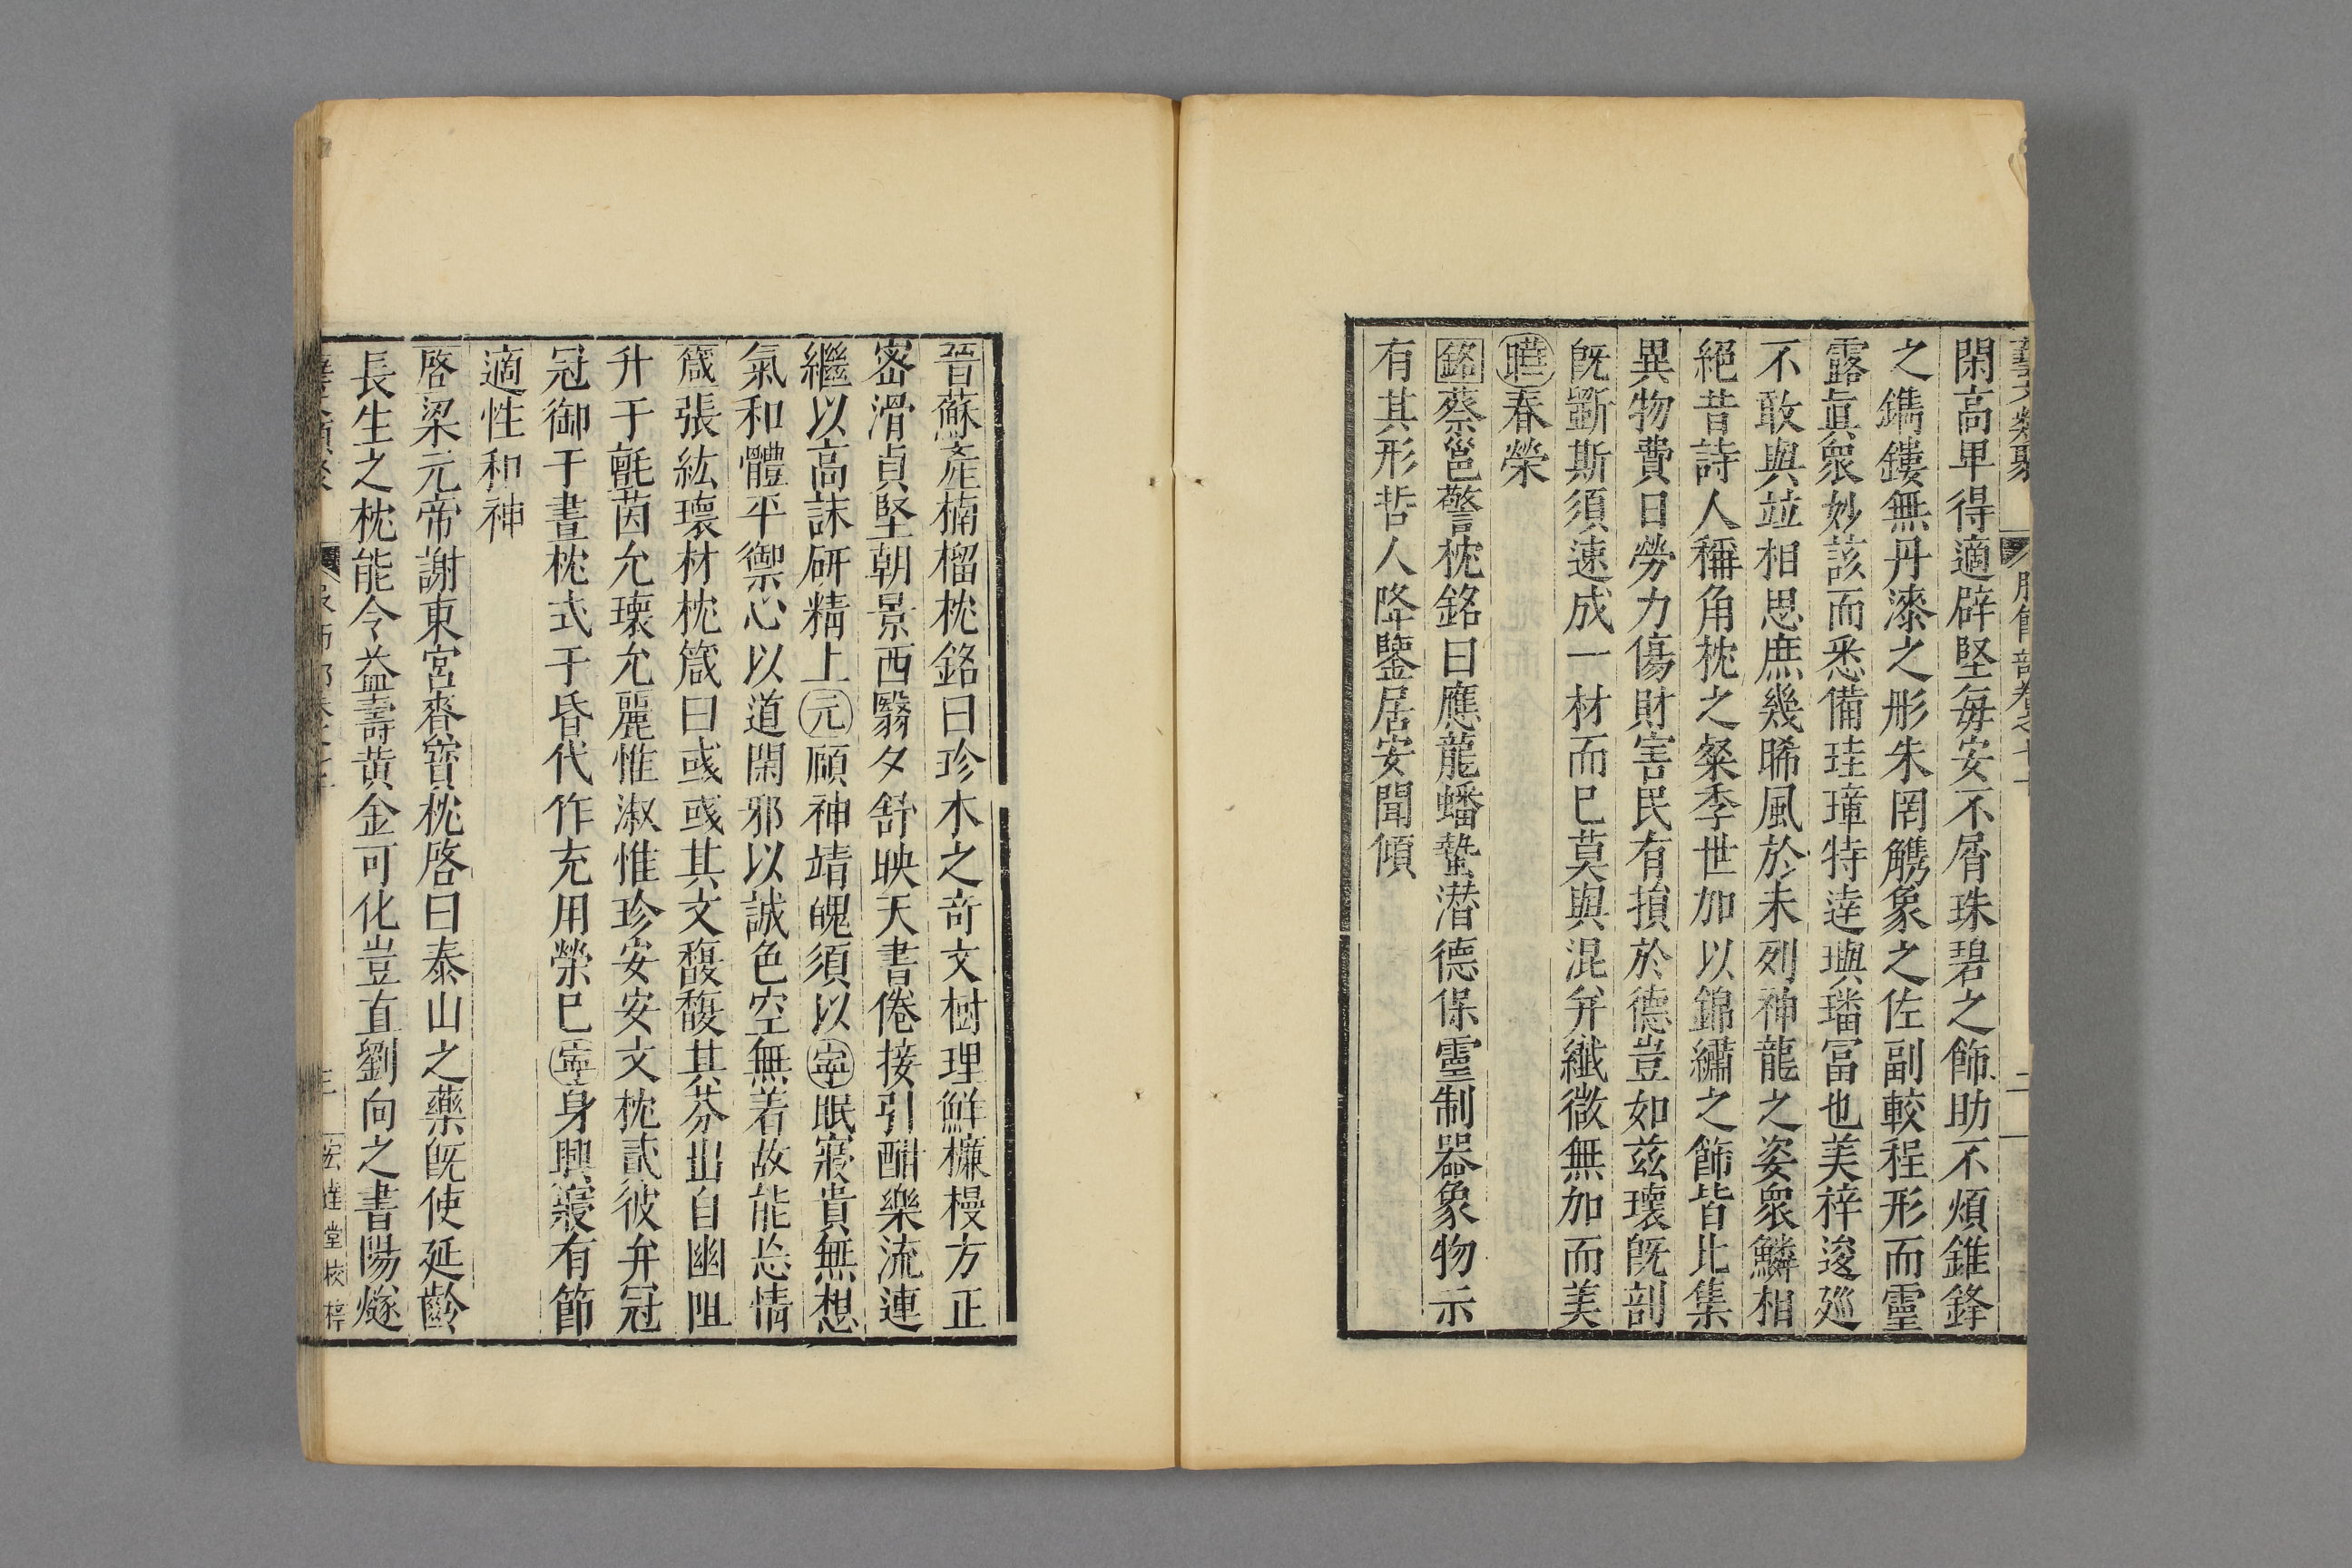 藝文類聚 服飾部卷之七十 二
閑高𤰞得適辟堅每安不屑珠碧之飾助不煩錐鋒
之鐫鏤無丹漆之彤朱罔觹象之佐副較程形而靈
露眞衆妙該而悉備珪璋特達璵璠冨也美梓逡巡
不敢與竝相思庶幾晞風於末列神龍之姿衆鱗相
絕昔詩人稱角枕之粲季世加以錦繡之飾皆比集
異物費日勞力傷財害民有損於德豈如茲瓌旣剖
旣斲斯須速成一材而巳莫與混并纖微無加而美
曄春榮
銘蔡邕警枕銘曰應龍蟠蟄潛德保靈制器象物示
有其形哲人降鑒居安聞傾
晉蘇彥楠榴枕銘曰珍木之奇文樹理鮮櫳槾方正
密滑貞堅朝景西翳夕舒映天書倦接引酣樂流連
繼以高詠研精上元頤神靖魄須以寧眠寢貴無想
氣和體平禦心以道閑邪以誠色空無着故能忘情
箴張紘瓌材枕箴曰彧彧其文馥馥其芬出自幽阻
升于氈茵允瓌允麗惟淑惟珍安安文枕貳彼弁冠
冠御于晝枕式于昏代作充用榮巳寧身興寢有節
適性和神
啓梁元帝謝東宮賚寶枕啓曰泰山之藥旣使延齡
長生之枕能令益壽黃金可化豈直劉向之書陽燧
三 宏達堂校梓